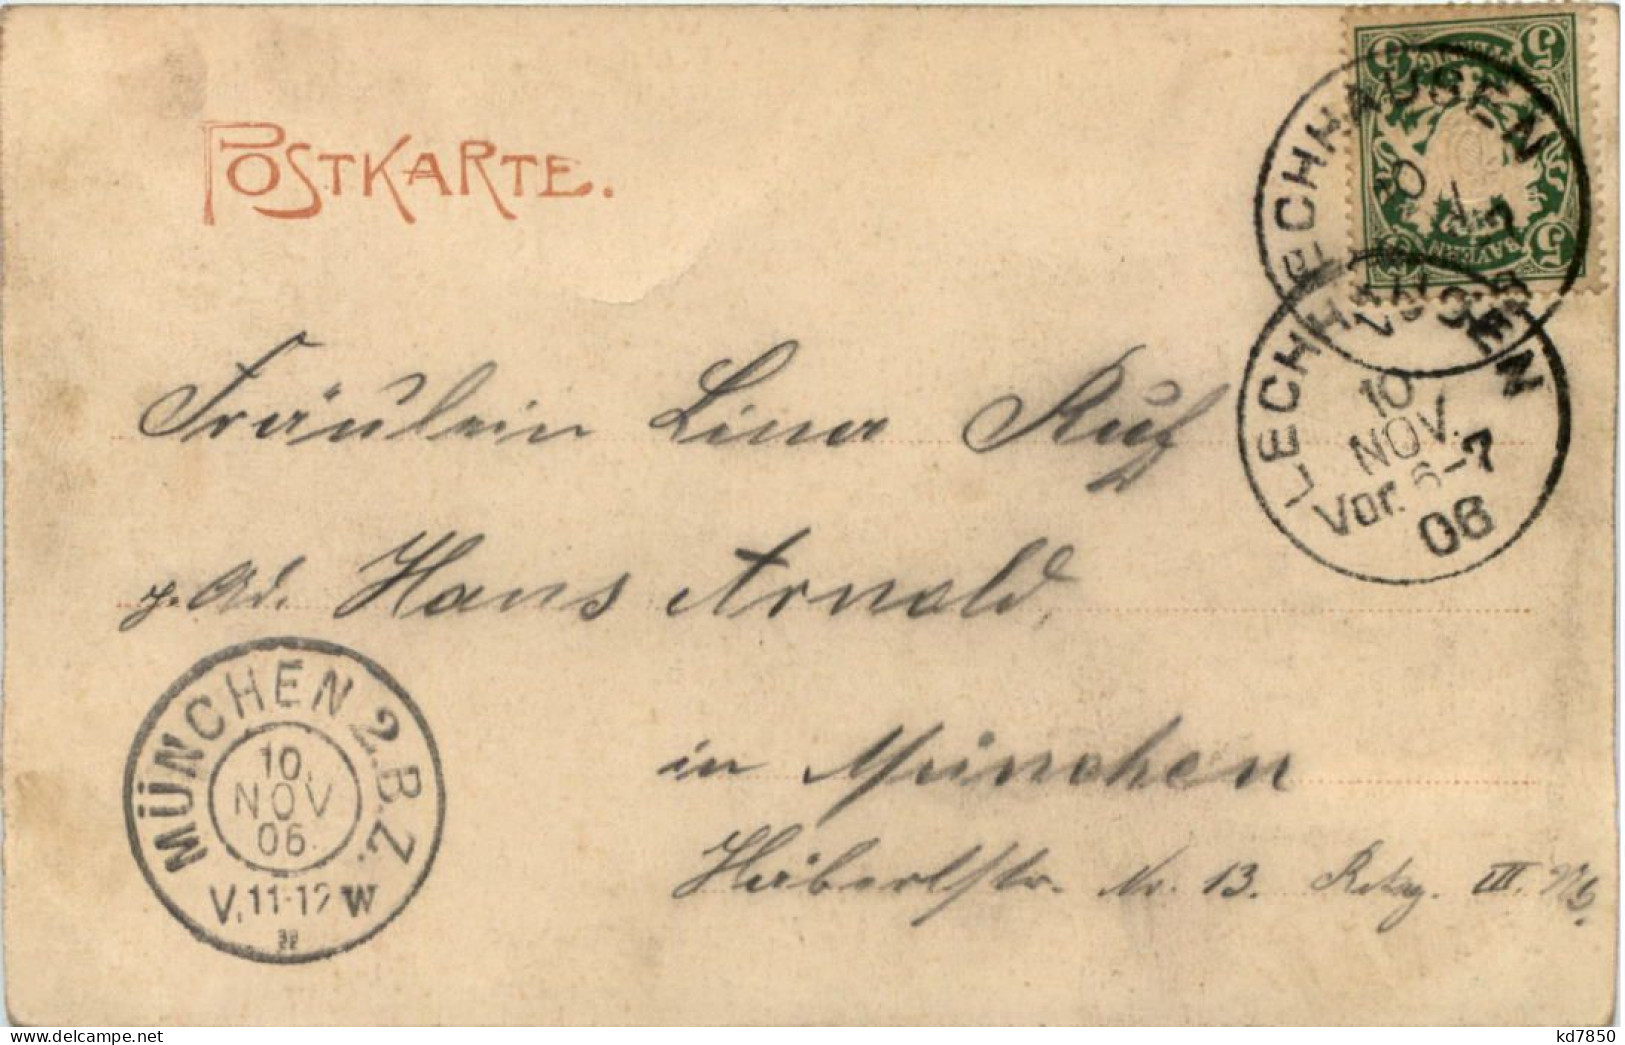 POSTKARTE.
5 5
BAYERN
5 5
LECHHAUSEN
LECHHAUSEN
10
NOV.
Vor. 6-7
06
Fräulein Lina Ruf
p. Ad. Hans Arnold
in München
Nr. 13. III.
MÜNCHEN 2.B.Z.
10.
NOV
06.
V.11-12 W
delcampe.net
kd7850